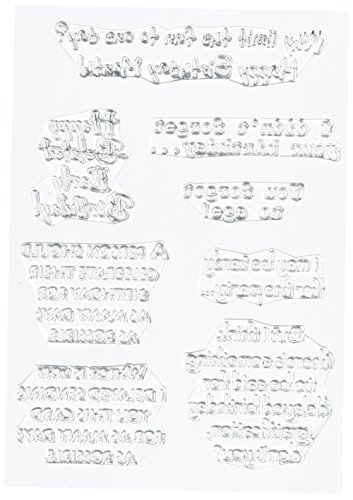 Why limit the fun to one day?
Happy Birthday Month!
Happy
Belated
Early
Birthday
I didn't forget
your birthday...
You forgot
to age!
A PERSON SHOULD
CELEBRATE THEIR
BIRTHDAY FOR
AS MANY DAYS
AS POSSIBLE
I may be
for the party...
But I think
there's something
to be said for
delayed birthday
gratification,
don't you?
WHICH IS WHY
I DELAYED SENDING
YOU THIS CARD
FOR AS MANY DAYS
AS POSSIBLE